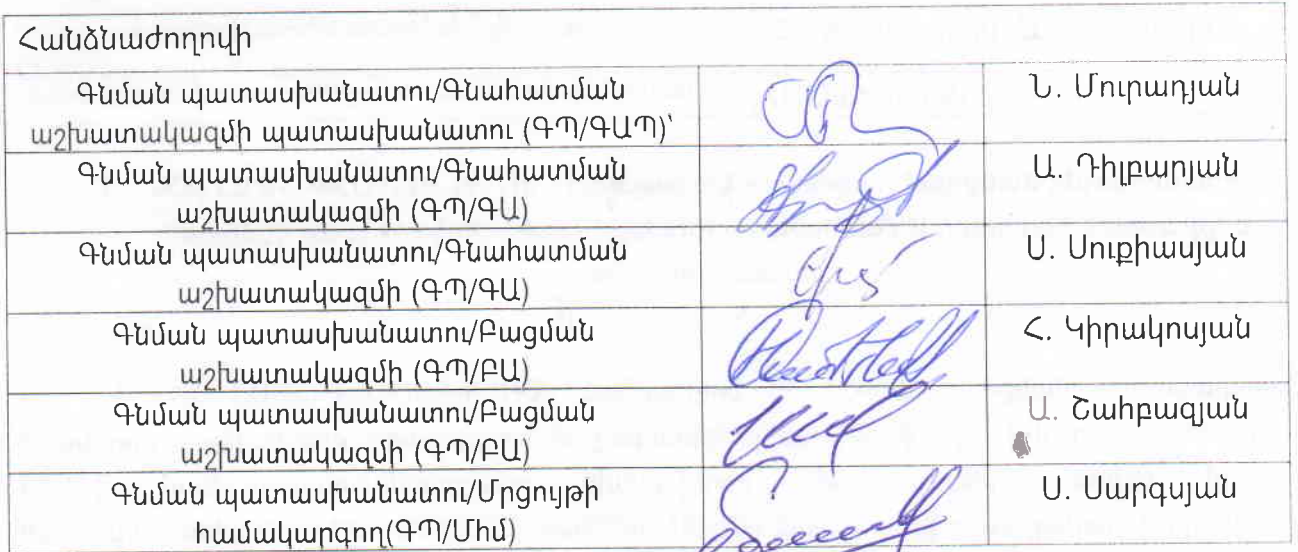 Հանձնաժողովի
Գնման պատասխանատու/Գնահատման
աշխատակազմի պատասխանատու (ԳՊ/ԳԱՊ)՝
Ն. Մուրադյան
Գնման պատասխանատու/Գնահատման
աշխատակազմի (ԳՊ/ԳԱ)
Ա. Դիլբարյան
Գնման պատասխանատու/Գնահատման
աշխատակազմի (ԳՊ/ԳԱ)
Ս. Սուքիասյան
Գնման պատասխանատու/Բացման
աշխատակազմի (ԳՊ/ԲԱ)
Հ. Կիրակոսյան
Գնման պատասխանատու/Բացման
աշխատակազմի (ԳՊ/ԲԱ)
Ա. Շահբազյան
Գնման պատասխանատու/Մրցույթի
համակարգող(ԳՊ/Միմ)
Ս. Սարգսյան